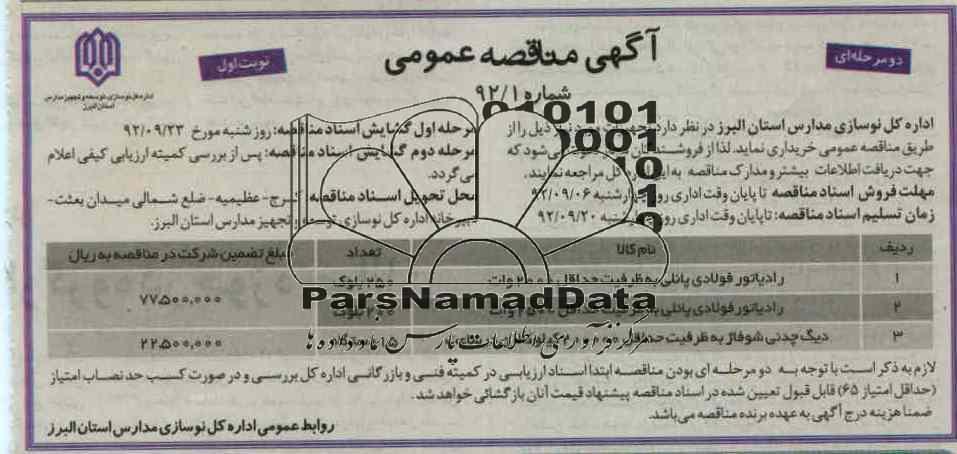 آگهی مناقصه عمومی
دو مرحله‌ای
نوبت اول
شماره ۹۲/۱
اداره کل نوسازی، توسعه و تجهیز مدارس
استان البرز
اداره کل نوسازی مدارس استان البرز در نظر دارد ذیل را از
طریق مناقصه عمومی خریداری نماید. لذا از می‌شود که
جهت دریافت اطلاعات بیشتر و مدارک مناقصه به این اداره کل مراجعه نمایند.
مهلت فروش اسناد مناقصه تا پایان وقت اداری روز چهارشنبه ۹۲/۰۹/۰۶
زمان تسلیم اسناد مناقصه: تا پایان وقت اداری روز ۹۲/۰۹/۲۰
مرحله اول گشایش اسناد مناقصه: روز شنبه مورخ ۹۲/۰۹/۲۳
مرحله دوم گشایش اسناد مناقصه: پس از بررسی کمیته ارزیابی کیفی اعلام
می‌گردد.
محل تحویل اسناد مناقصه: کرج- عظیمیه- ضلع شمالی میدان بعثت-
دبیرخانه اداره کل نوسازی توسعه و تجهیز مدارس استان البرز.
ردیف نام کالا تعداد مبلغ تضمین شرکت در مناقصه به ریال
۱ رادیاتور فولادی پانلی به ظرفیت حداقل وات بلوک
۷۷۵۰۰،۰۰۰
۲ رادیاتور فولادی پانلی به ظرفیت حداقل وات بلوک
۳ دیگ چدنی شوفاژ به ظرفیت حداقل ۲۲،۵۰۰،۰۰۰
لازم به ذکر است با توجه به دو مرحله ای بودن مناقصه ابتدا اسناد ارزیابی در کمیته فنی و بازرگانی اداره کل بررسی و در صورت کسب حد نصاب امتیاز
(حداقل امتیاز ۶۵) قابل قبول تعیین شده در اسناد مناقصه پیشنهاد قیمت آنان بازگشائی خواهد شد.
ضمنا هزینه درج آگهی به عهده برنده مناقصه می‌باشد.
روابط عمومی اداره کل نوسازی مدارس استان البرز
ParsNamadData
مرکز فرآوری اطلاعات پارس نماد داده ها